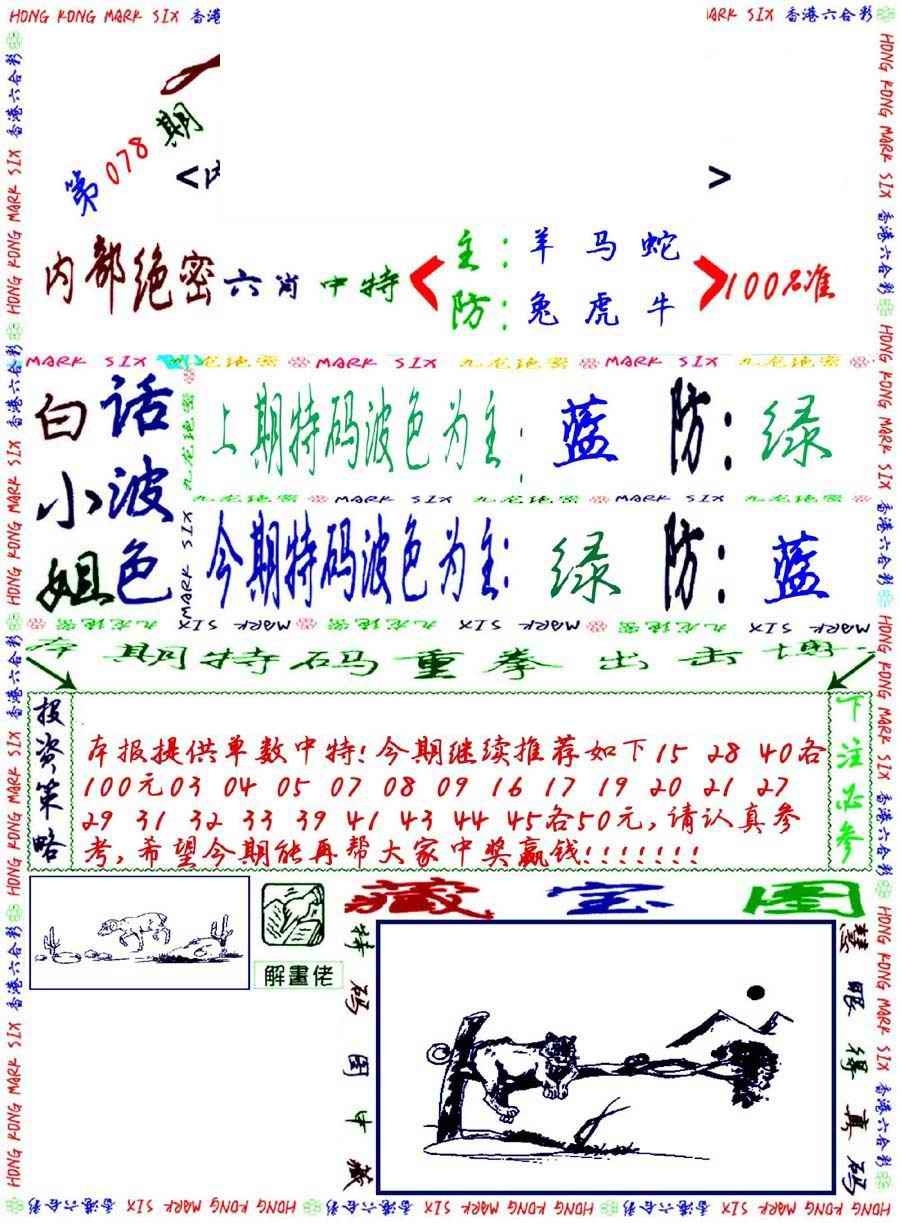 HONG KONG MARK SIX 香港
MARK SIX 香港六合彩
第078期
<
>
内部绝密六肖中特
主:羊马蛇
防:兔虎牛
100%准
MARK SIX 九龙绝密 MARK SIX 九龙绝密 MARK SIX 九龙绝密
白话
小波
姐色
上期特码波色为主:蓝 防:绿
九龙绝密 MARK SIX 九龙绝密 MARK SIX
今期特码波色为主:绿 防:蓝
九龙绝密 MARK SIX 九龙绝密 MARK SIX 九龙绝密 MARK SIX
本期特码重拳出击
投资策略
本报提供单数中特!今期继续推荐如下15 28 40各
100元03 04 05 07 08 09 16 17 19 20 21 27
29 31 32 33 39 41 43 44 45各50元,请认真参
考,希望今期能再帮大家中奖赢钱!!!!!!!
下注必参
解畫佬
藏宝图
特码图中藏
慧眼得真码
HONG KONG MARK SIX 香港六合彩